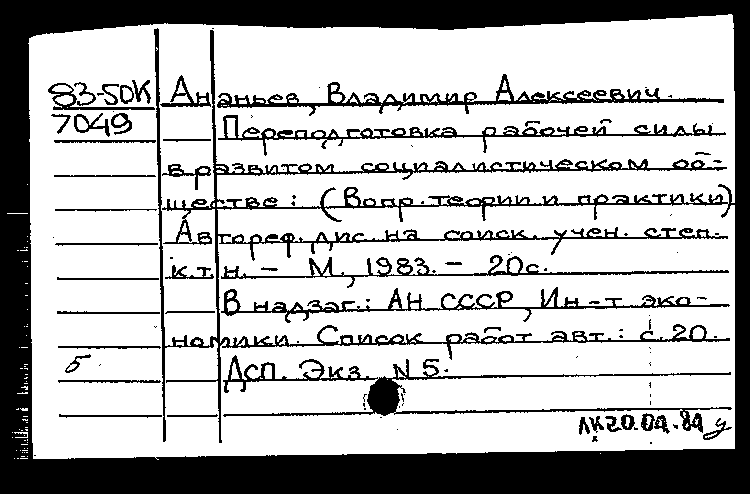 83-50К Ананьев, Владимир Алексеевич.
7049 Переподготовка рабочей силы
в развитом социалистическом об-
ществе: (Вопр. теории и практики)
Автореф. дис. на соиск. учен. степ.
к.т.н. - М., 1983. - 20с.
В надзаг.: АН СССР, Ин-т эко-
номики. Список работ авт.: с. 20.
б Дсп. Экз. N 5.